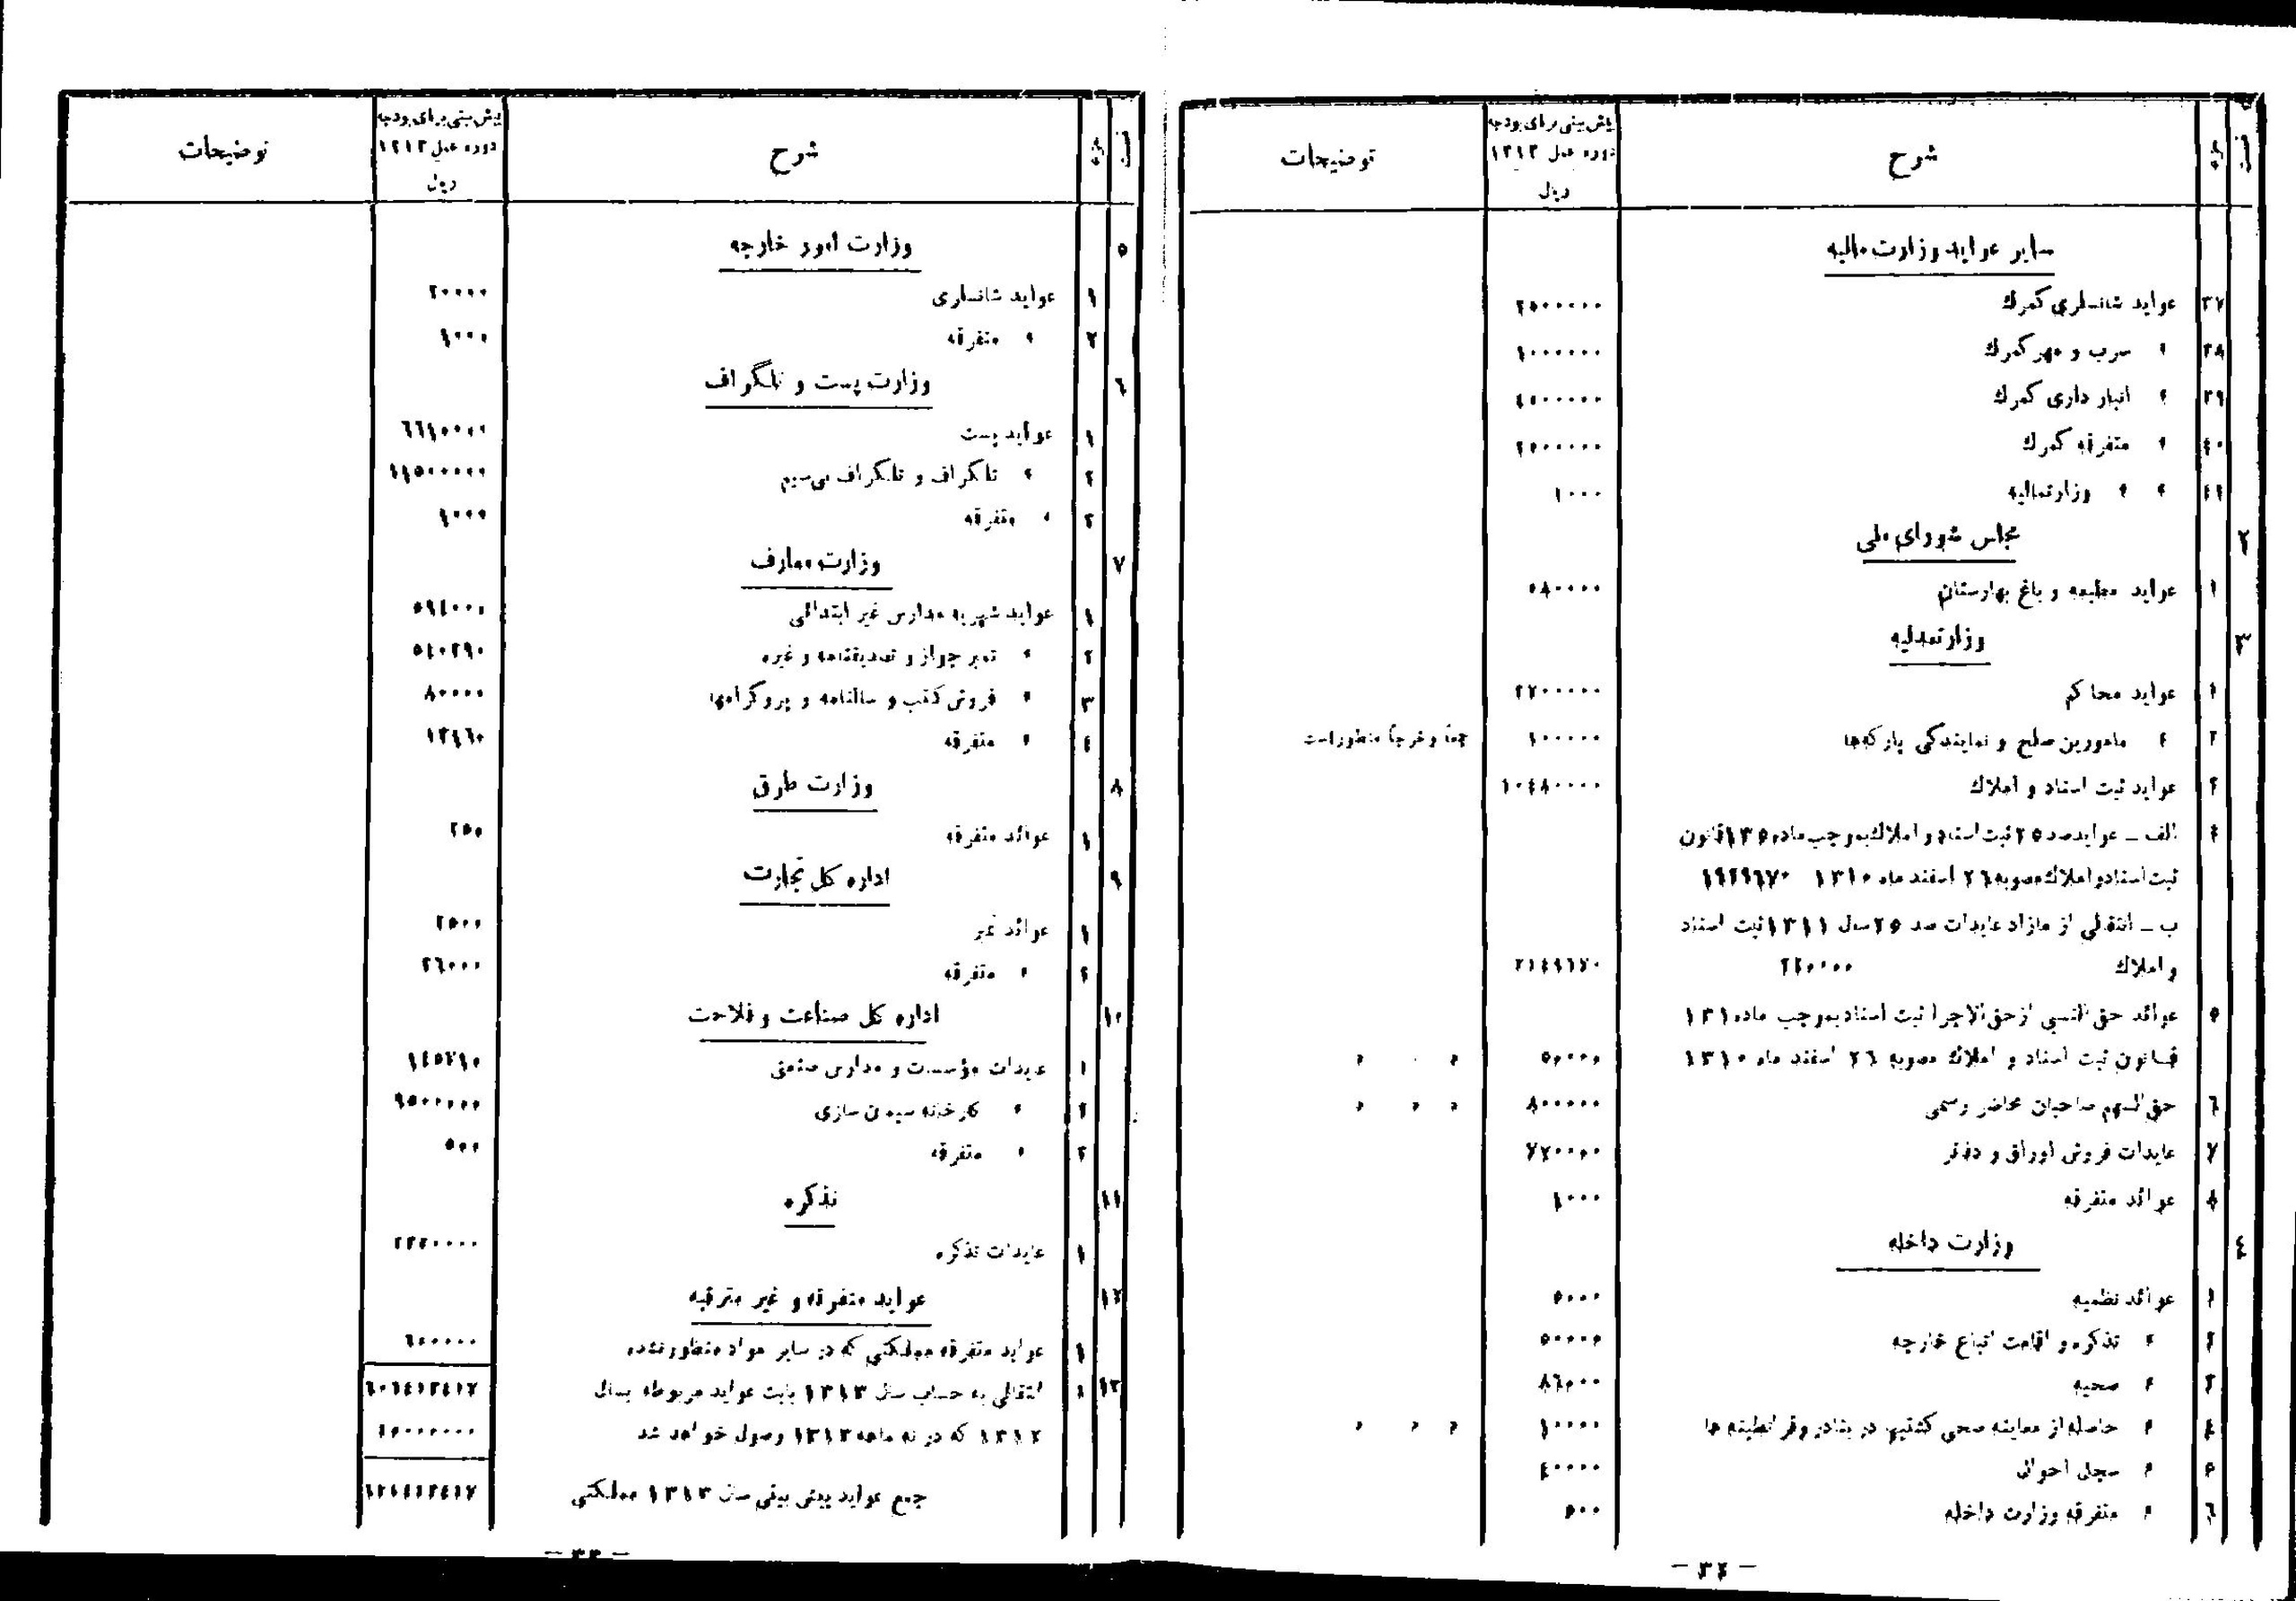 قسمت ماده شرح پیش بینی برای بودجه توضیحات
دوره عمل ۱۳۱۳
ریال
سایر عواید وزارت مالیه
۳۷ عواید شانسلری کمرك
۳۸ » سرب و مهر کمرك ۱۰۰۰۰۰۰
۳۹ » انبار داری کمرك
٤۰ » متفرقه کمرك
٤۱ » » وزارتمالیه ۱۰۰۰
۲ مجلس شورای ملی
۱ عواید مطبعه و باغ بهارستان ۵۸۰۰۰۰
۳ وزارتعدلیه
۱ عواید محاکم
۲ » مامورین صلح و نمایندگی پارکه‌ها ۱۰۰۰۰۰ جمعاً و خرجاً منظور است
۳ عواید ثبت اسناد و املاك ۱۰٤۸۰۰۰۰
٤ الف ــ عواید صد ۲۵ ثبت اسناد و املاك بموجب ماده ۱۳۵ قانون
ثبت اسناد و املاك مصوبه ۲٦ اسفند ماه ۱۳۱۰ ۱۹۲۹٦۷۰
ب ــ انتقالی از مازاد عایدات صد ۲۵ سال ۱۳۱۱ ثبت اسناد
و املاك ۲۲۰۰۰۰ ۲۱٤۹٦۷۰
۵ عوائد حق النسبی از حق الاجرا ثبت اسناد بموجب ماده ۱۳۱
قانون ثبت اسناد و املاك مصوبه ۲٦ اسفند ماه ۱۳۱۰ ۵۰۰۰۰ » » »
٦ حق السهم صاحبان محاضر رسمی ۸۰۰۰۰۰ » » »
۷ عایدات فروش اوراق و دفاتر ۷۷۰۰۰۰
۸ عوائد متفرقه ۱۰۰۰
٤ وزارت داخله
۱ عوائد نظمیه ۵۰۰۰
۲ » تذکره و اقامت اتباع خارجه ۵۰۰۰۰
۳ » صحیه ۸٦۰۰۰
٤ » حاصله از معاینه صحی کشتیها در بنادر و قرانطینه ها ۱۰۰۰۰ » » »
۵ » سجل احوال ٤۰۰۰۰
٦ » متفرقه وزارت داخله ۵۰۰
– ۳۲ –
قسمت ماده شرح پیش بینی برای بودجه توضیحات
دوره عمل ۱۳۱۳
ریال
۵ وزارت امور خارجه
۱ عواید شانسلری
۲ » متفرقه ۱۰۰۰
٦ وزارت پست و تلگراف
۱ عواید پست ٦٦۱۵۰۰۰
۲ » تلگراف و تلگراف بی‌سیم ۱۱۵۰۰۰۰۰
۳ » متفرقه ۱۰۰۰
۷ وزارت معارف
۱ عواید شهریه مدارس غیر ابتدائی ۵۹٤۰۰۰
۲ » تمبر جواز و تصدیقنامه و غیره
۳ » فروش کتب و سالنامه و پروگرامها ۸۰۰۰۰
٤ » متفرقه
۸ وزارت طرق
۱ عوائد متفرقه ۲۵۰
۹ اداره کل تجارت
۱ عوائد نمبر ۲۵۰۰
۲ » متفرقه
۱۰ اداره کل صناعت و فلاحت
۱ عایدات مؤسسات و مدارس صنعتی
۲ » کارخانه سیمان سازی ۹۵۰۰۰۰۰
۳ » متفرقه ۵۰۰
۱۱ تذکره
۱ عایدات تذکره
۱۲ عواید متفرقه و غیر مترقبه
۱ عواید متفرقه مملکتی که در سایر مواد منظور نشده
۱۳ ۱ انتقالی به حساب سال ۱۳۱۳ بابت عواید مربوطه بسال
۱۳۱۲ که در نه ماهه ۱۳۱۳ وصول خواهد شد
جمع عواید پیش بینی سال ۱۳۱۳ مملکتی
– ۳۳ –